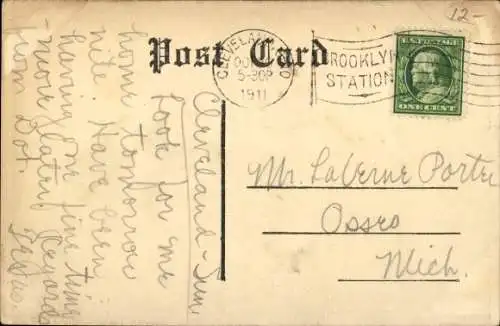 12-
Post Card
CLEVELAND, O
5-30P
1911
BROOKLYN
STATION
ONE CENT
Mr. LaVerne Porter
Osseo
Mich.
Cleveland - Sun
Look for me
home tomorrow
nite. Have been
having one fine time
more later. Regards
from Dot.